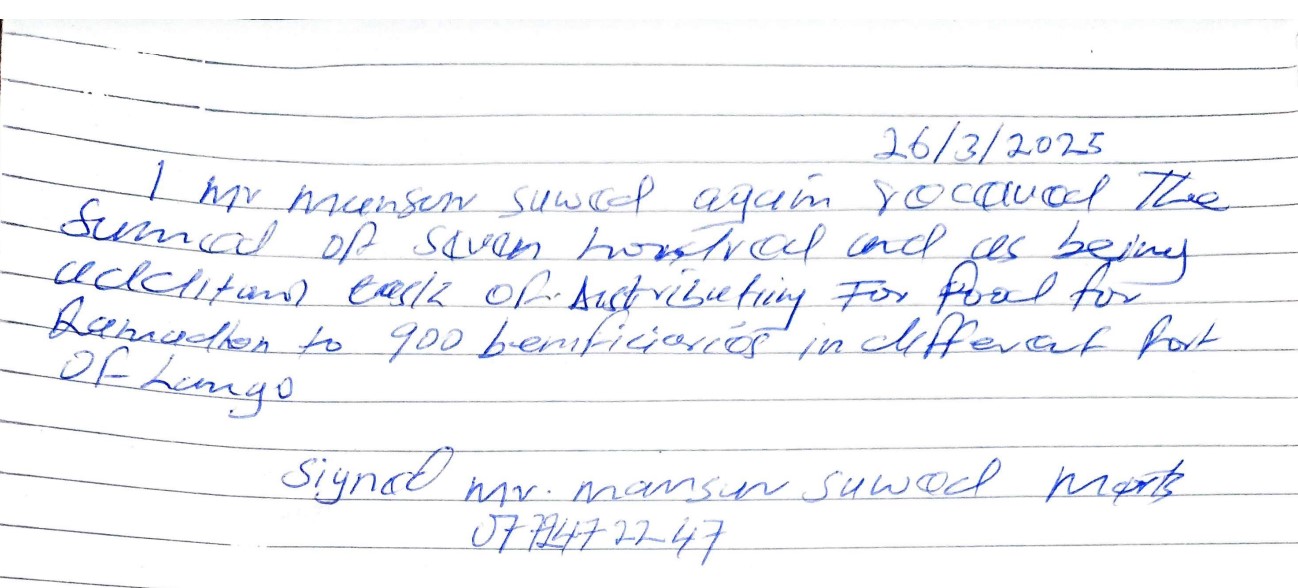 26/3/2025
I Mr mansur suwed again received The
Summed of Seven hondred and as being
additional task of distributing For food for
Ramadhan to 900 beneficiaries in different Part
Of Lango
Signed Mr. mansur suwed